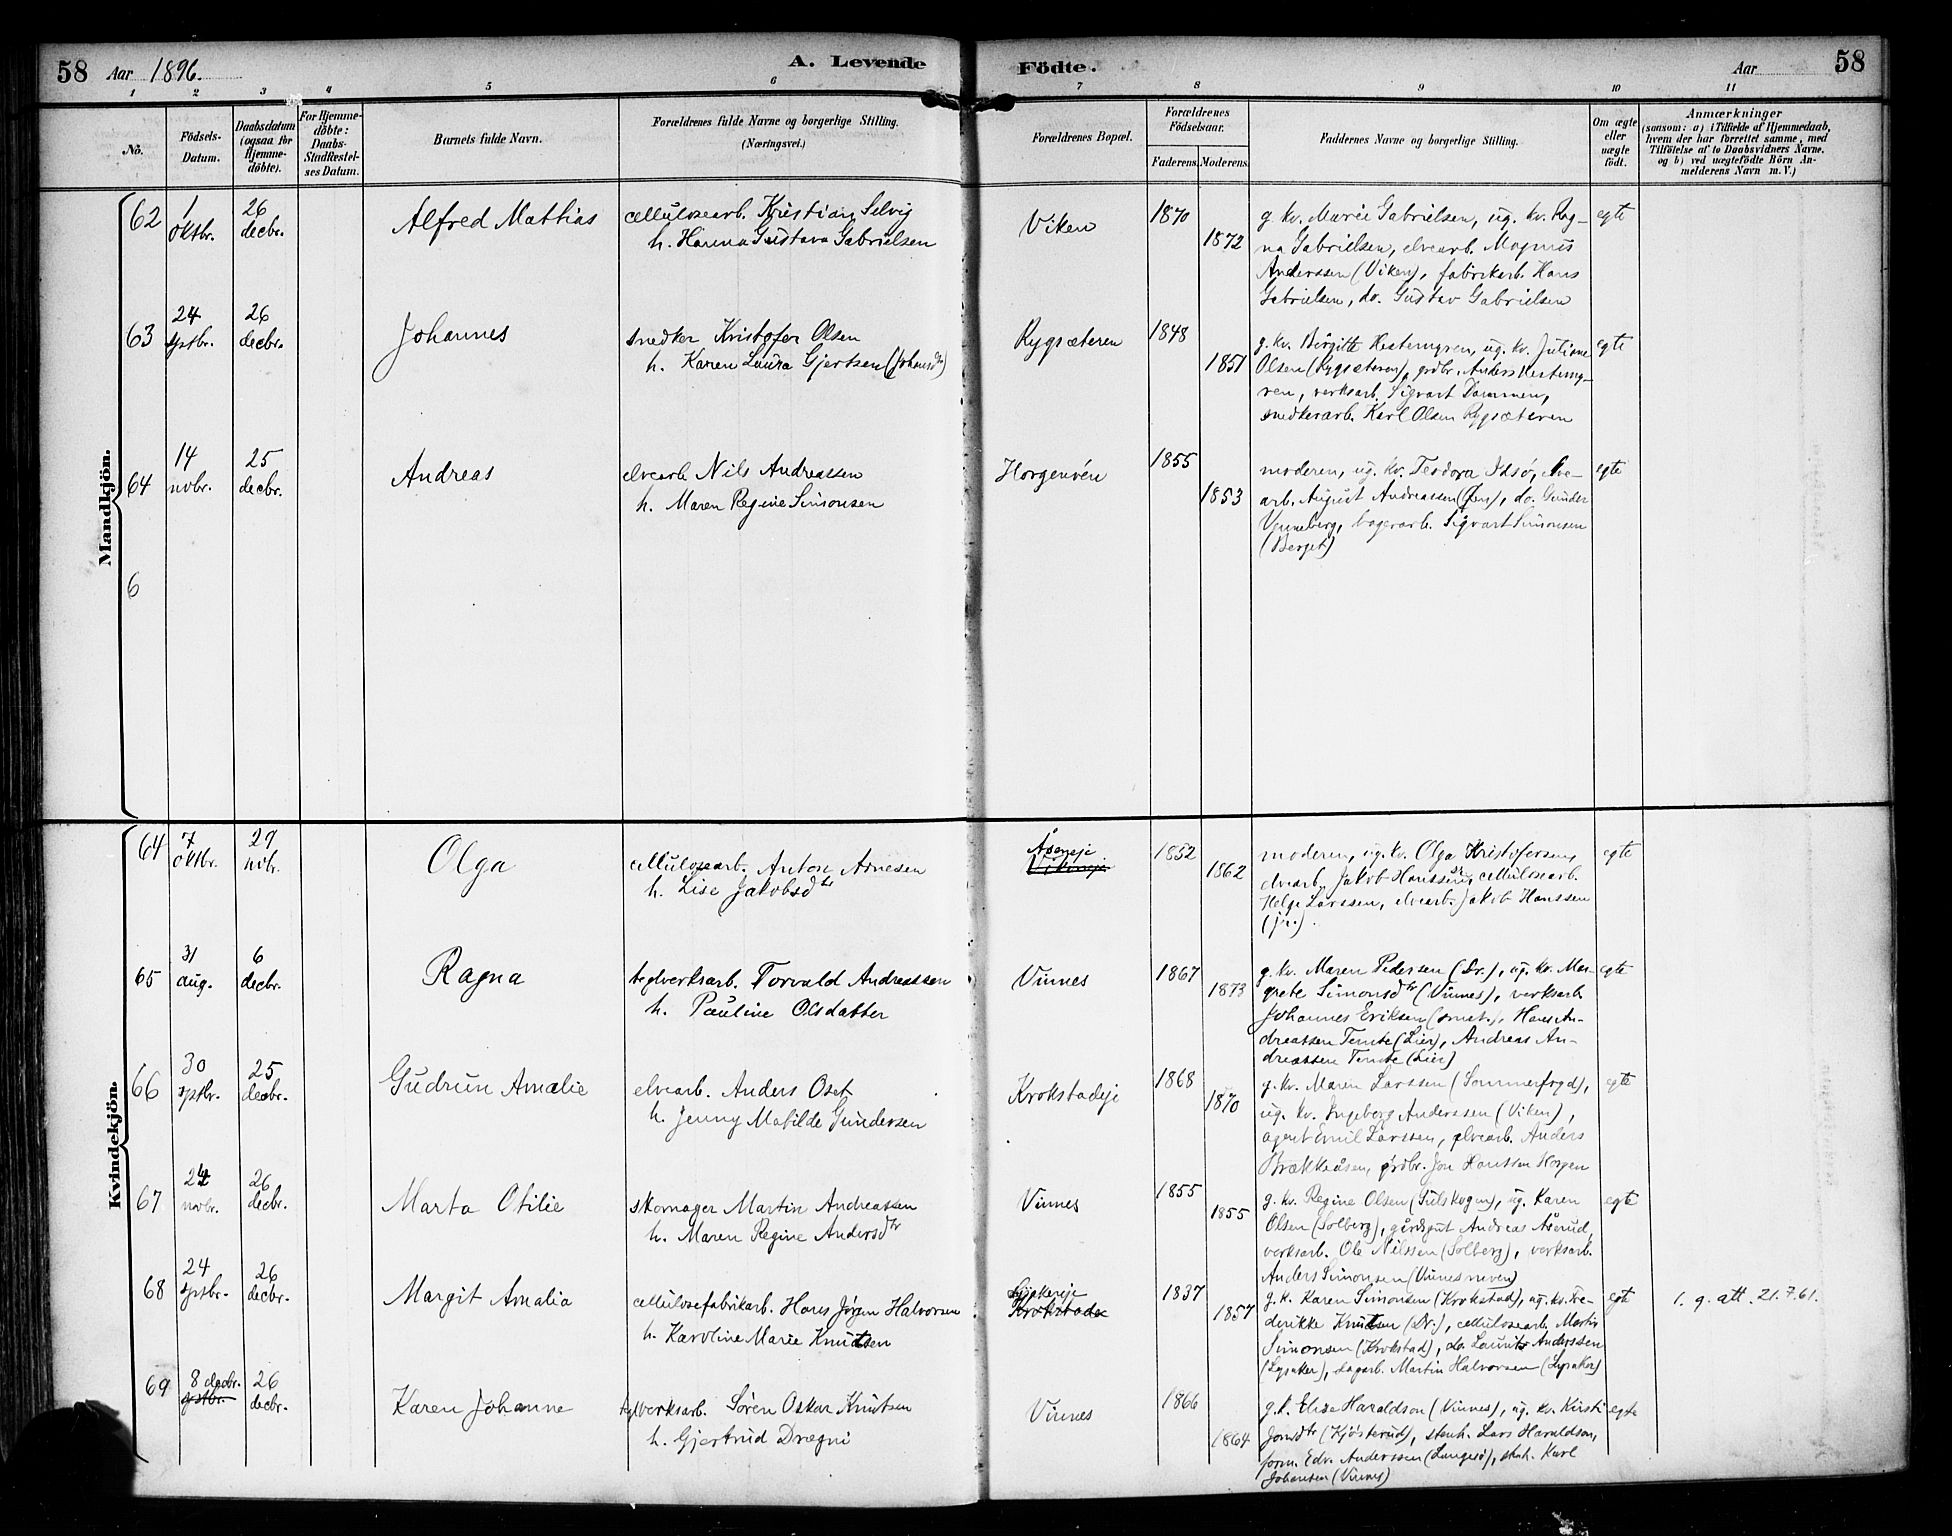 58 Aar 1896. A. Levende Födte. Aar 58
1 2 3 4 5 6 7 8 9 10 11
No.
Födsels-
Datum.
Daabsdatum
(ogsaa for
Hjemme-
döbte).
For Hjemme-
døbte:
Daabs-
Stadfæstel-
ses Datum.
Barnets fulde Navn.
Forældrenes fulde Navne og borgerlige Stilling.
(Næringsvei.)
Forældrenes Bopæl.
Forældrenes
Födselsaar.
Faderens. Moderens.
Faddernes Navne og borgerlige Stilling.
Om ægte
eller
uægte
födt.
Anmærkninger
(saasom: a) i Tilfælde af Hjemmedaab,
hvem der har forrettet samme, med
Tilföielse af to Daabsvidners Navne,
og b) ved uægtefödte Börn An-
melderens Navn m. V.)
Mandkjön.
62
1
oktbr.
26
decbr.
Alfred Mathias
cellulosearb. Kristian Selvig
h. Hanna Gustava Gabrielsen
Viken
1870
1872
g. kv. Marie Gabrielsen, ug. kv. Rag-
na Gabrielsen, elvearb. Magnus
Anderssen (Viken), fabrikarb. Hans
Gabrielsen, do. Gustav Gabrielsen
egte
63
24
sptbr.
26
decbr.
Johannes
snedker Kristofer Olsen
h. Karen Laura Gjertsen (Johansdr)
Rygsæteren
1848
1851
g. kv. Birgitte Hestemyren, ug. kv. Juliane
Olsen (Rygsæteren), grdbr. Anders Hestemy-
ren, verksarb. Sigvart Dammen,
snedkerarb. Karl Olsen Rygsæteren
egte
64
14
novbr.
25
decbr.
Andreas
elvearb Nils Andreassen
h. Maren Regine Simonsen
Horgenvén
1855
1853
moderen, ug. kv. Teodora elve-
arb. August Andreassen (Øen), do. Gunder
Venneberg, bagerarb. Sigvart Simonsen
(Berget)
egte
6
Kvindekjön.
64
7
oktbr.
29
novbr.
Olga
cellulosearb. Anton Arnesen
h. Lise Jakobsdtr
Åseneje
Vikeneje
1852
1862
moderen, ug. kv. Olga Kristofersen,
elvearb. Jakob Hanssen, cellulosearb.
Helge Larssen, elvearb. Jakob Hanssen
(jr.).
egte
65
31
aug.
6
decbr.
Ragna
teglverksarb. Torvald Andreassen
h. Pauline Olsdatter
Vinnes
1867
1873
g. kv. Maren Pedersen (Dr.), ug. kv. Mar-
grete Simonsdtr (Vinnes), verksarb.
Johannes Eriksen (smst.), Hans An-
dreassen Temte (Lier), Andreas An-
dreassen Temte (Lier)
egte
66
30
sptbr.
25
decbr.
Gudrun Amalie
elvearb. Anders Oset
h. Jenny Matilde Gundersen
Krokstadeje
1868
1870
g. kv. Maren Larssen (Sommerfryd),
ug. kv. Ingeborg Anderssen (Viken),
agent Emil Larssen, elvearb. Anders
Brækkeåsen, grdbr. Jon Hanssen Horgen
egte
67
24
novbr.
26
decbr.
Marta Otilie
skomager Martin Andreassen
h. Maren Regine Andersdtr
Vinnes
1855
1855
g. kv. Regine Olsen (Gulskogen), ug. Karen
Olsen (Solberg), gårdsgut Andreas Åserud,
verksarb. Ole Nilssen (Solberg), verksarb.
Anders Simonsen (Vinnesneven)
egte
68
24
sptbr.
26
decbr.
Margit Amalia
cellulosefabrikarb. Hans Jörgen Halvorsen
h. Karoline Marie Knutsen
Lysakereje
Krokstade
1837
1857
g. k. Karen Simonsen (Krokstad), ug. kv. Fre-
derikke Knutsen (Dr.), cellulosearb. Martin
Simonsen (Krokstad), do. Laurits Anderssen
(Lysaker), sagarb. Martin Halvorsen (Lysaker)
egte
1. g. att. 21.7.61.
69
8 decbr.
sptbr.
26
decbr.
Karen Johanne
tglverksarb. Sören Oskar Knutsen
h. Gjertrud Drægni
Vinnes
1866
1864
g. k. Elise Haraldson (Vinnes), ug. kv. Kirsti
Jonsdtr (Kjösterud), stenh. Lars Haraldson,
form. Edv. Anderssen (Langesö), stenh. Karl
Johansen (Vinnes)
egte